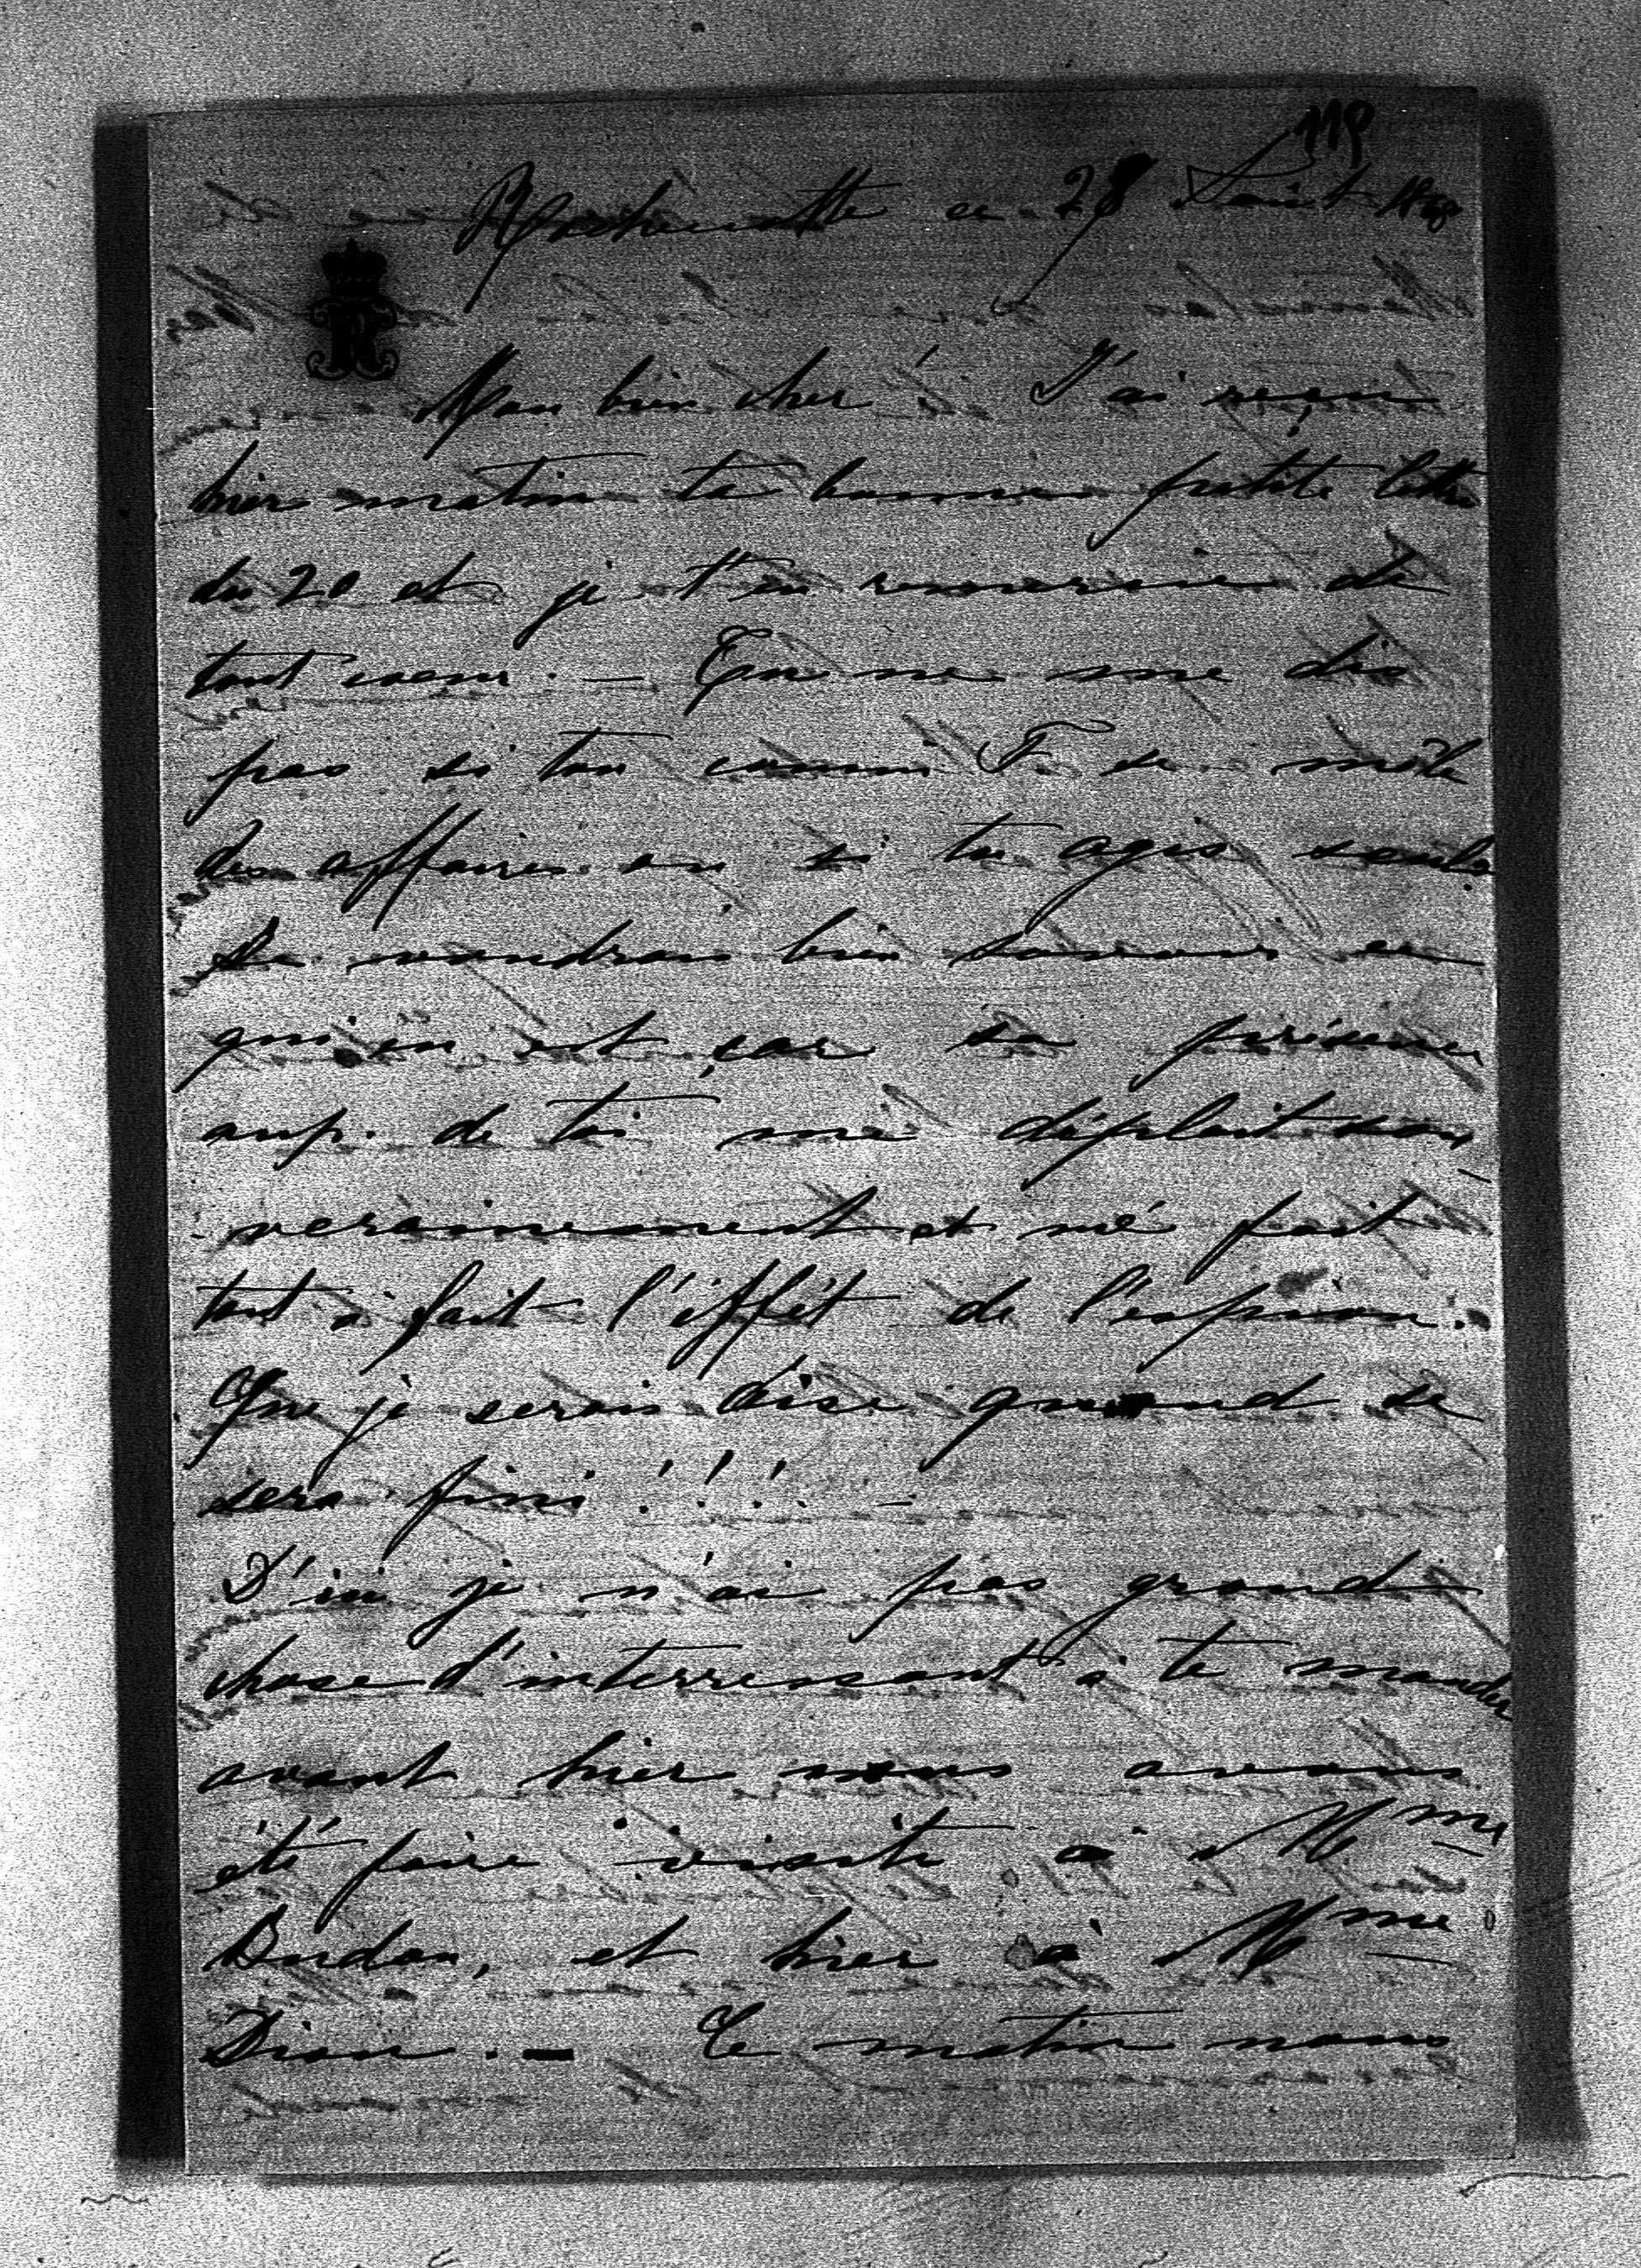 119
Rochecotte ce 28 Août
Mon bien cher! J'ai reçu
hier matin ta bonne petite lettre
du 20 et je t'en remercie de
tout coeur. — Tu ne me dis
pas si ton cousin F. se mêle
des affaires ou si tu agis seul.
Je voudrais bien savoir ce
qui en est, car sa présence
aup. de toi me déplait sou-
verainement et me fait
tout à fait l'effet de l'espion.
Que je serais aise quand ce
sera fini!!! —
D'ici je n'ai pas grand
chose d'interressant à te mander
avant hier nous avons
été faire visite à Mme
Budan, et hier à Mme
Dion. — Ce matin nous